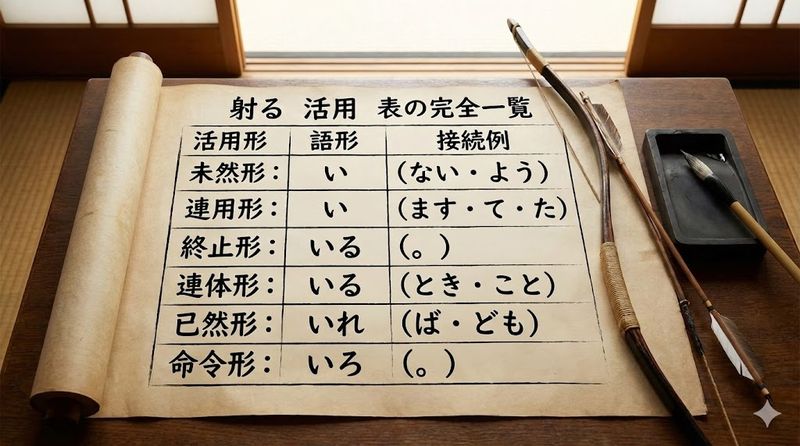 射る 活用 表の完全一覧
活用形 語形 接続例
未然形： い （ない・よう）
連用形： い （ます・て・た）
終止形： いる （。）
連体形： いる （とき・こと）
已然形： いれ （ば・ども）
命令形： いろ （。）